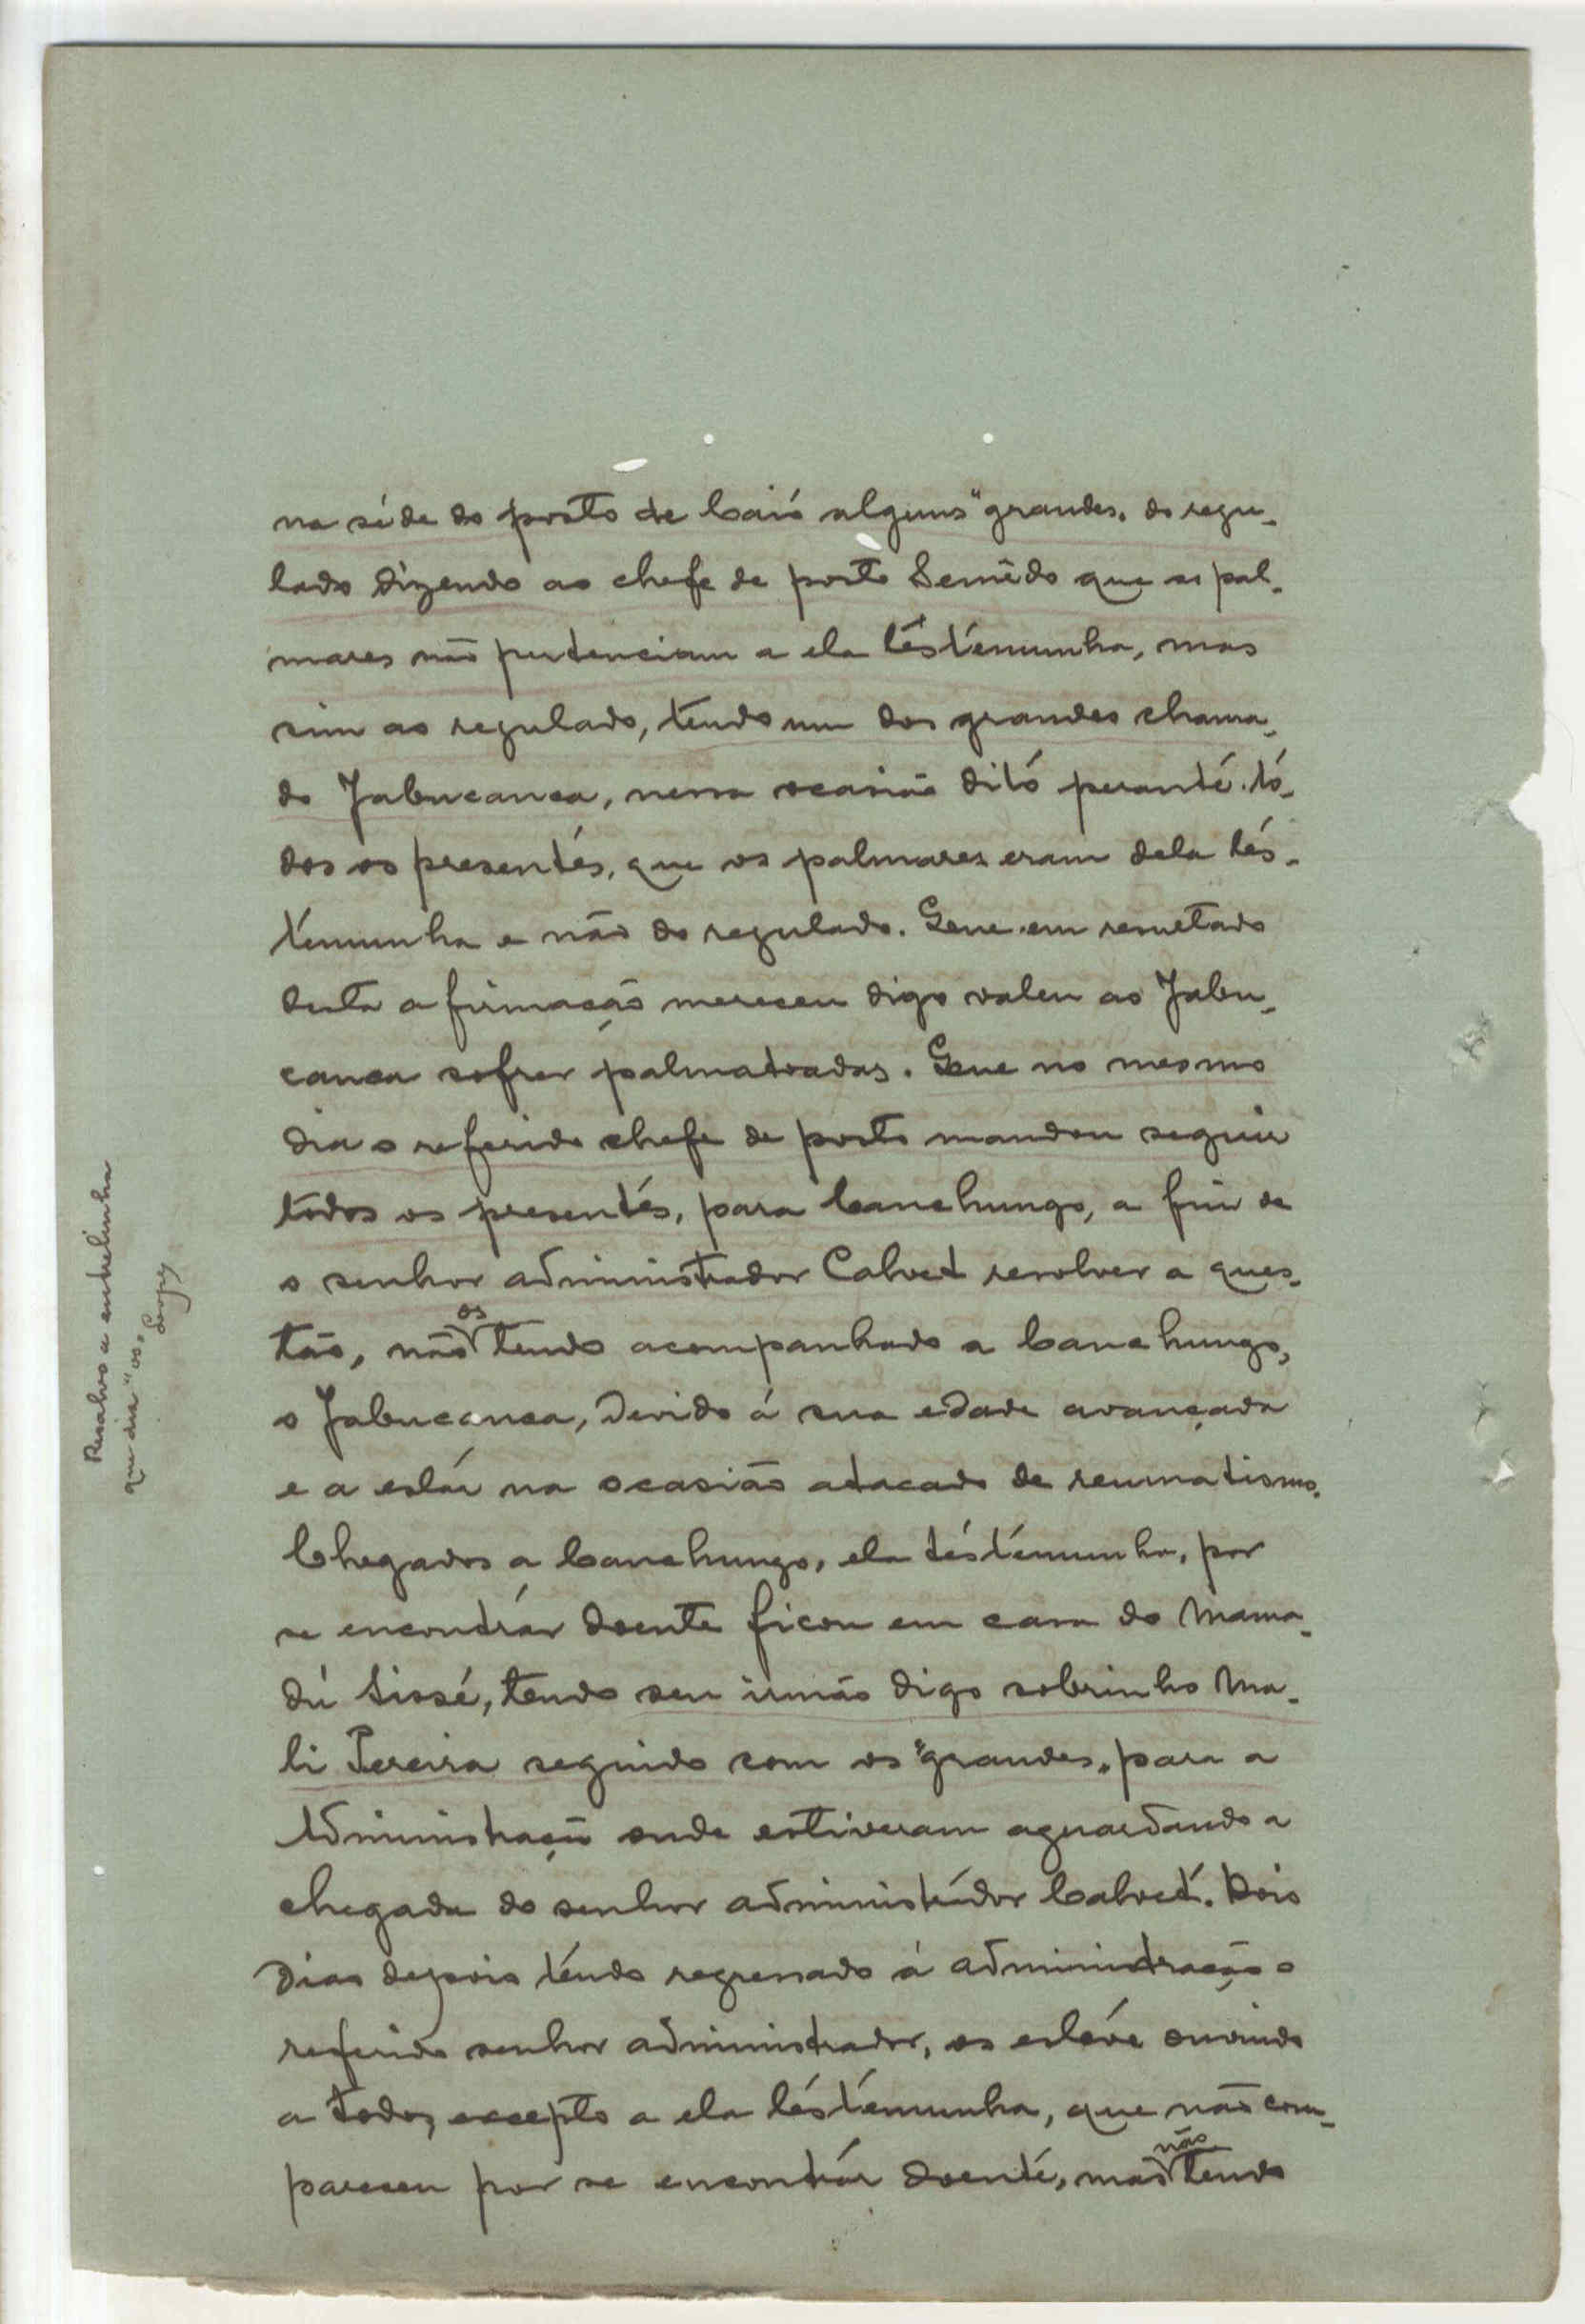 na séde do posto de Caió alguns "grandes" do regu-
lado dizendo ao chefe de posto Semêdo que os pal-
mares não pertenciam a ela testemunha, mas
sim ao regulado, tendo um dos grandes chama-
do Jabucanca, nessa ocasião dito perante to-
dos os presentes, que os palmares eram dela tes-
temunha e não do regulado. Que em resultado
desta afirmação mereceu digo valeu ao Jabu-
canca sofrer palmatoadas. Que no mesmo
dia o referido chefe de posto mandou seguir
todos os presentes, para Canchungo, a fim de
o senhor administrador Calvet resolver a ques-
tão, não os tendo acompanhado a Canchungo,
o Jabucanca, devido á sua edade avançada
e a estar na ocasião atacado de reumatismo.
Chegados a Canchungo, ela testemunha, por
se encontrar doente ficou em casa do Mama-
dú Sissé, tendo seu irmão digo sobrinho Ma-
li Pereira seguido com os "grandes" para a
Administração onde estiveram aguardando a
chegada do senhor administrador Calvet. Dois
dias depois tendo regressado á administração o
referido senhor administrador, os esteve ouvindo
a todos, excepto a ela testemunha, que não com-
pareceu por se encontrar doente, mas não tendo
Resalvo a entrelinha
que diz "os"
Lopes